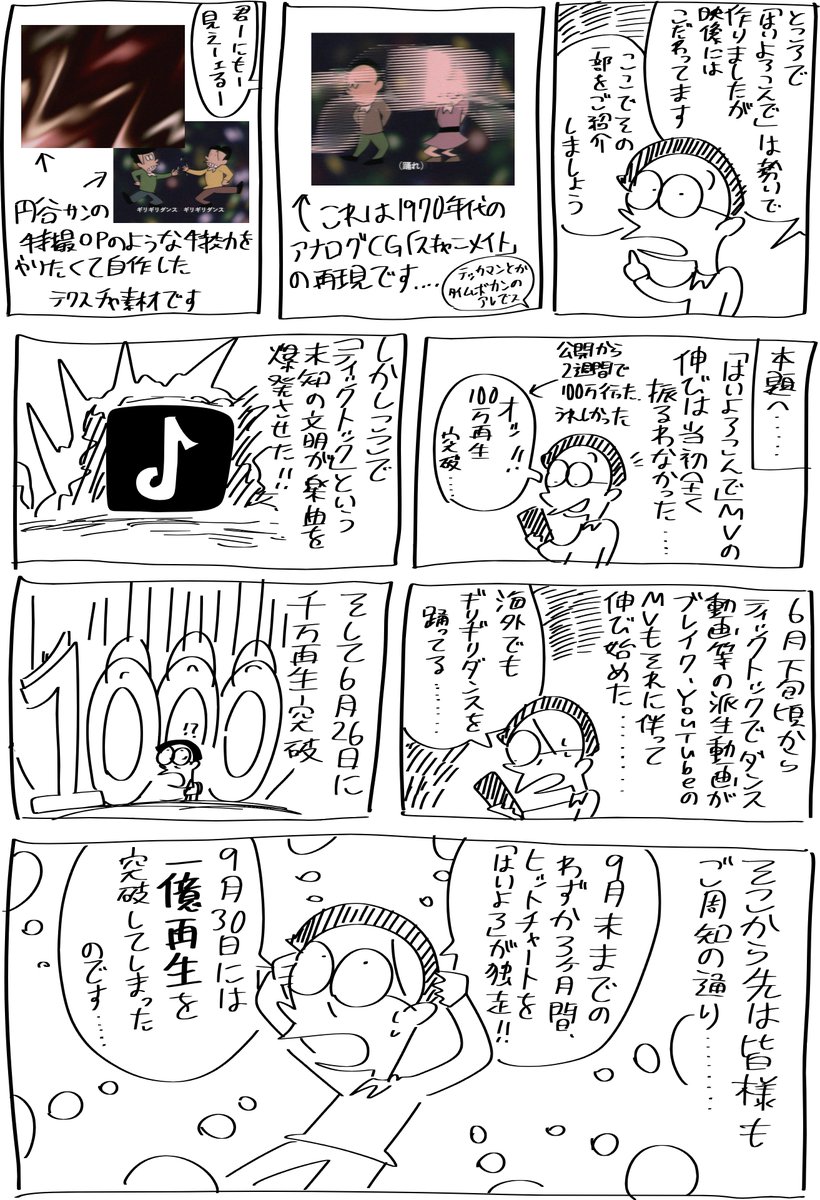 ところで
「はいよろこんで」は勢いで
作りましたが
映像には
こだわってます
ここでその
一部をご紹介
しましょう
(踊れ)
↑これは1970年代の
アナログCG「スキャニメイト」
の再現です....
テッカマンとか
タイムボカンの
アレです
君ーにもー
見えーェるー
ギリギリダンス ギリギリダンス
円谷かんの
特撮OPのような特効を
やりたくて自作した
テクスチャ素材です
本題へ……
「はいよろこんで」MVの
伸びは当初全く
振るわなかった……
公開から
2週間で
100万行った。
うれしかった
オッ!!
100万再生
突破……
しかしここで
「ティックトック」という
未知の文明が楽曲を
爆発させた!!
6月下旬頃から
ティックトックでダンス
動画等の派生動画が
ブレイク、YouTubeの
MVもそれに伴って
伸び始めた………
海外でも
ギリギリダンスを
踊ってる………
そして6月26日に
千万再生突破
1000
!?
そこから先は皆様も
ご周知の通り……
9月末までの
わずか3ヶ月間、
ヒットチャートを
「はいよろ」が独走!!
9月30日には
一億再生を
突破してしまった
のです……